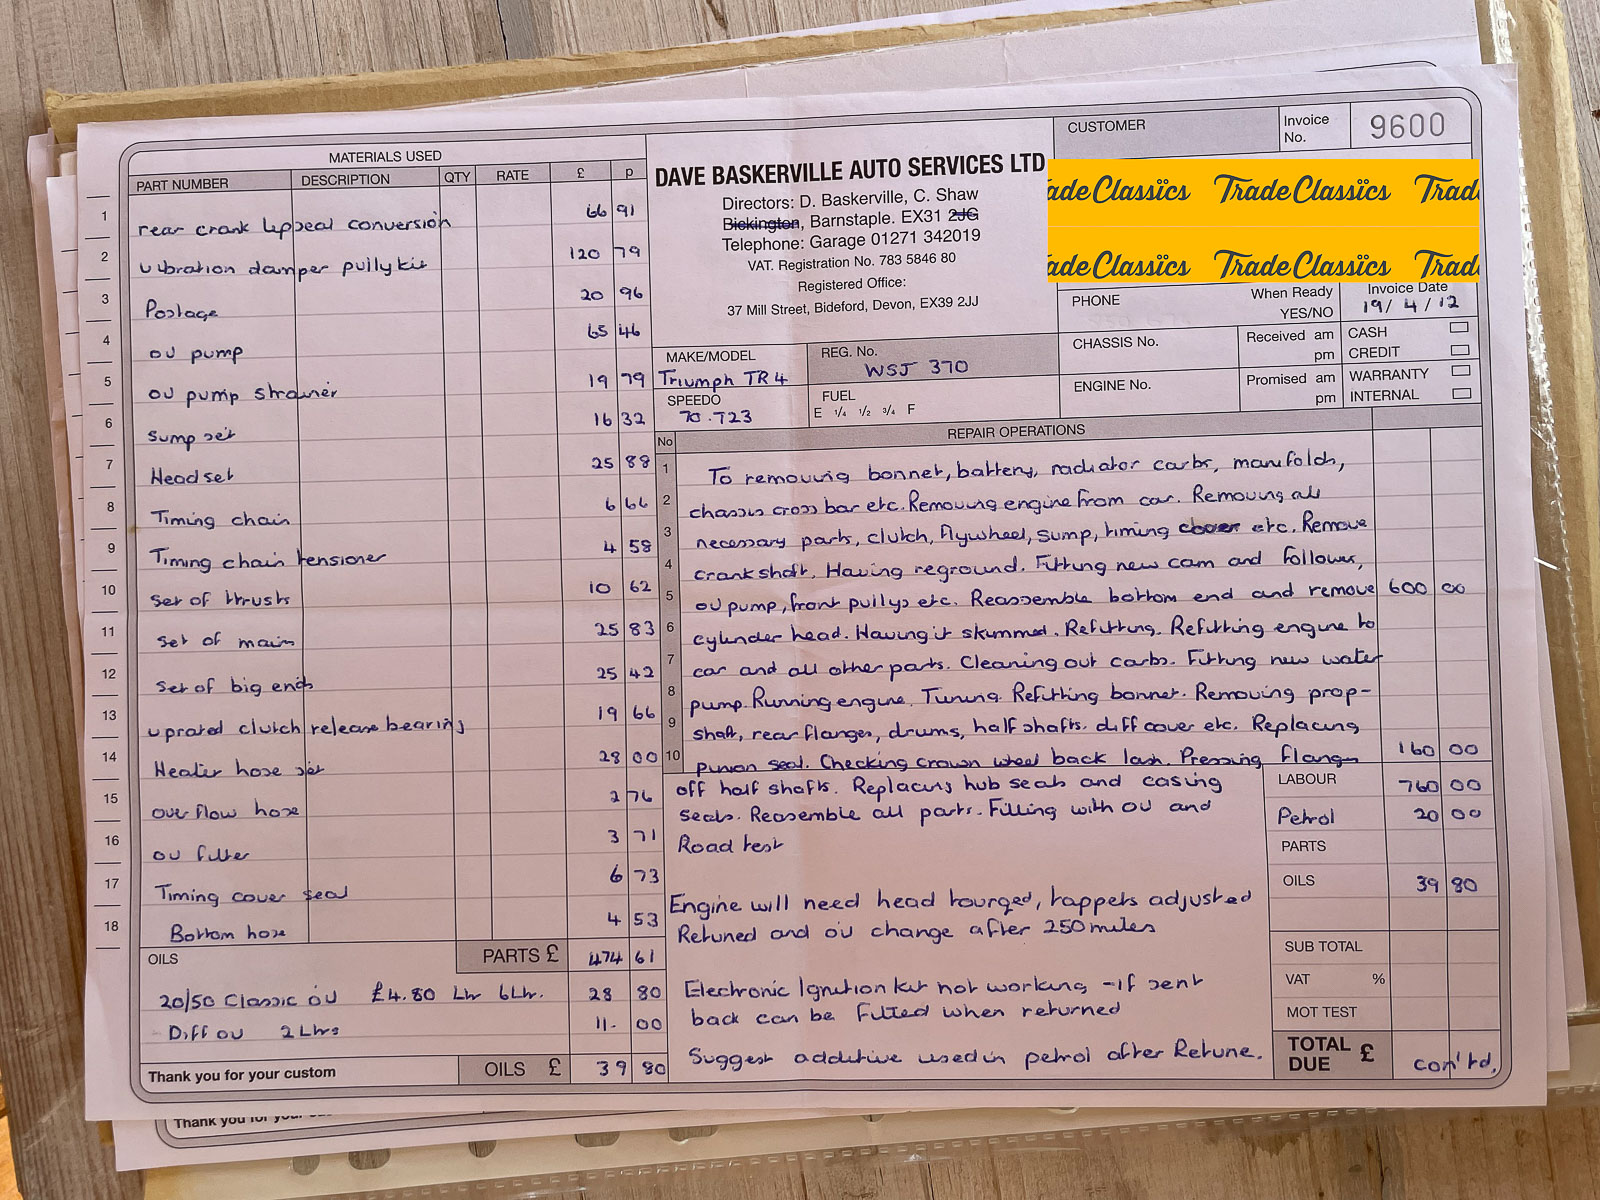 MATERIALS USED
PART NUMBER DESCRIPTION QTY RATE £ p
1 rear crank lip seal conversion 66 91
2 vibration damper pully kit 120 79
3 Postage 20 96
4 oil pump 65 46
5 oil pump strainer 19 79
6 Sump set 16 32
7 Head set 25 88
8 Timing chain 6 66
9 Timing chain tensioner 4 58
10 set of thrusts 10 62
11 set of mains 25 83
12 set of big ends 25 42
13 uprated clutch release bearing 19 66
14 Heater hose set 28 00
15 overflow hose 2 76
16 oil filter 3 71
17 Timing cover seal 6 73
18 Bottom hose 4 53
PARTS £ 474 61
OILS
20/50 Classic oil £4.80 Ltr 6Ltr. 28 80
Diff oil 2 Ltrs 11. 00
Thank you for your custom OILS £ 39 80
DAVE BASKERVILLE AUTO SERVICES LTD
Directors: D. Baskerville, C. Shaw
Bickington, Barnstaple. EX31 2JG
Telephone: Garage 01271 342019
VAT. Registration No. 783 5846 80
Registered Office:
37 Mill Street, Bideford, Devon, EX39 2JJ
CUSTOMER Invoice No. 9600
ade Classics Trade Classics Trad
ade Classics Trade Classics Trad
PHONE When Ready YES/NO Invoice Date 19/4/12
CHASSIS No. Received am pm CASH CREDIT
ENGINE No. Promised am pm WARRANTY INTERNAL
MAKE/MODEL Triumph TR4 REG. No. WSJ 370
SPEEDO 70.723 FUEL E 1/4 1/2 3/4 F
No REPAIR OPERATIONS
1 To removing bonnet, battery, radiator carbs, manifolds,
2 chassis cross bar etc. Removing engine from car. Removing all
3 necessary parts, clutch, flywheel, sump, timing cover etc. Remove
4 crankshaft. Having reground. Fitting new cam and follows,
5 oil pump, front pullys etc. Reassemble bottom end and remove 600 00
6 cylinder head. Having it skimmed. Refitting. Refitting engine to
7 car and all other parts. Cleaning out carbs. Fitting new water
8 pump. Running engine. Tuning. Refitting bonnet. Removing prop-
9 shaft, rear flanges, drums, half shafts. diff cover etc. Replacing
10 pinion seal. Checking crown wheel back lash. Pressing flanges 160 00
off half shafts. Replacing hub seals and casing
seals. Reassemble all parts. Filling with oil and
Road test
Engine will need head tourqed, tappets adjusted
Retuned and oil change after 250 miles
Electronic Ignition kit not working - if sent
back can be fitted when returned
Suggest additive used in petrol after Retune.
LABOUR 760 00
Petrol 20 00
PARTS
OILS 39 80
SUB TOTAL
VAT %
MOT TEST
TOTAL DUE £ con'td.
Thank you for your